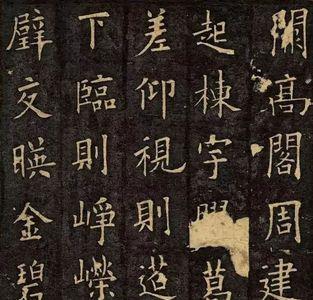 闕高閣周建
起棟宇葛
差仰視則迢
下臨則崢嶸
璧交暎金碧